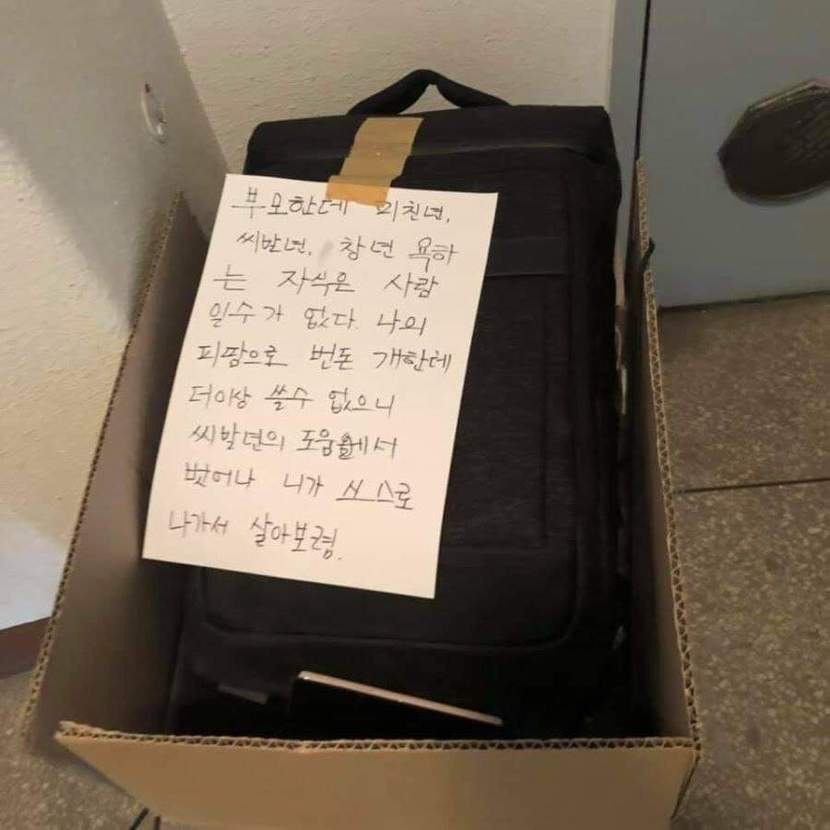 부모한테 미친년,
씨발년, 창년 욕하
는 자식은 사람
일수가 없다. 나의
피땀으로 번돈 개한테
더이상 쓸수 없으니
씨발년의 도움에서
벗어나 니가 스스로
나가서 살아보렴.